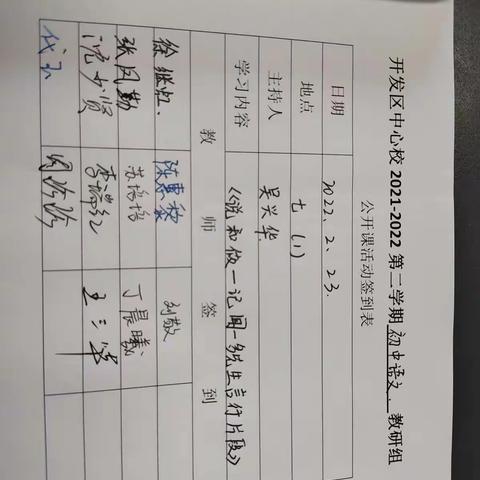 开发区中心校 2021-2022 第二学期 初中语文 教研组
公开课活动签到表
日期 2022、2、23.
地点 七（1）
主持人 吴兴华
学习内容 《说和做一记闻一多先生言行片段》
教师签到
徐继红、 陈惠黎 刘敬
张凤勤 苏培培 丁晨曦、
沈少贤 李瑞红 王三峰
代玉